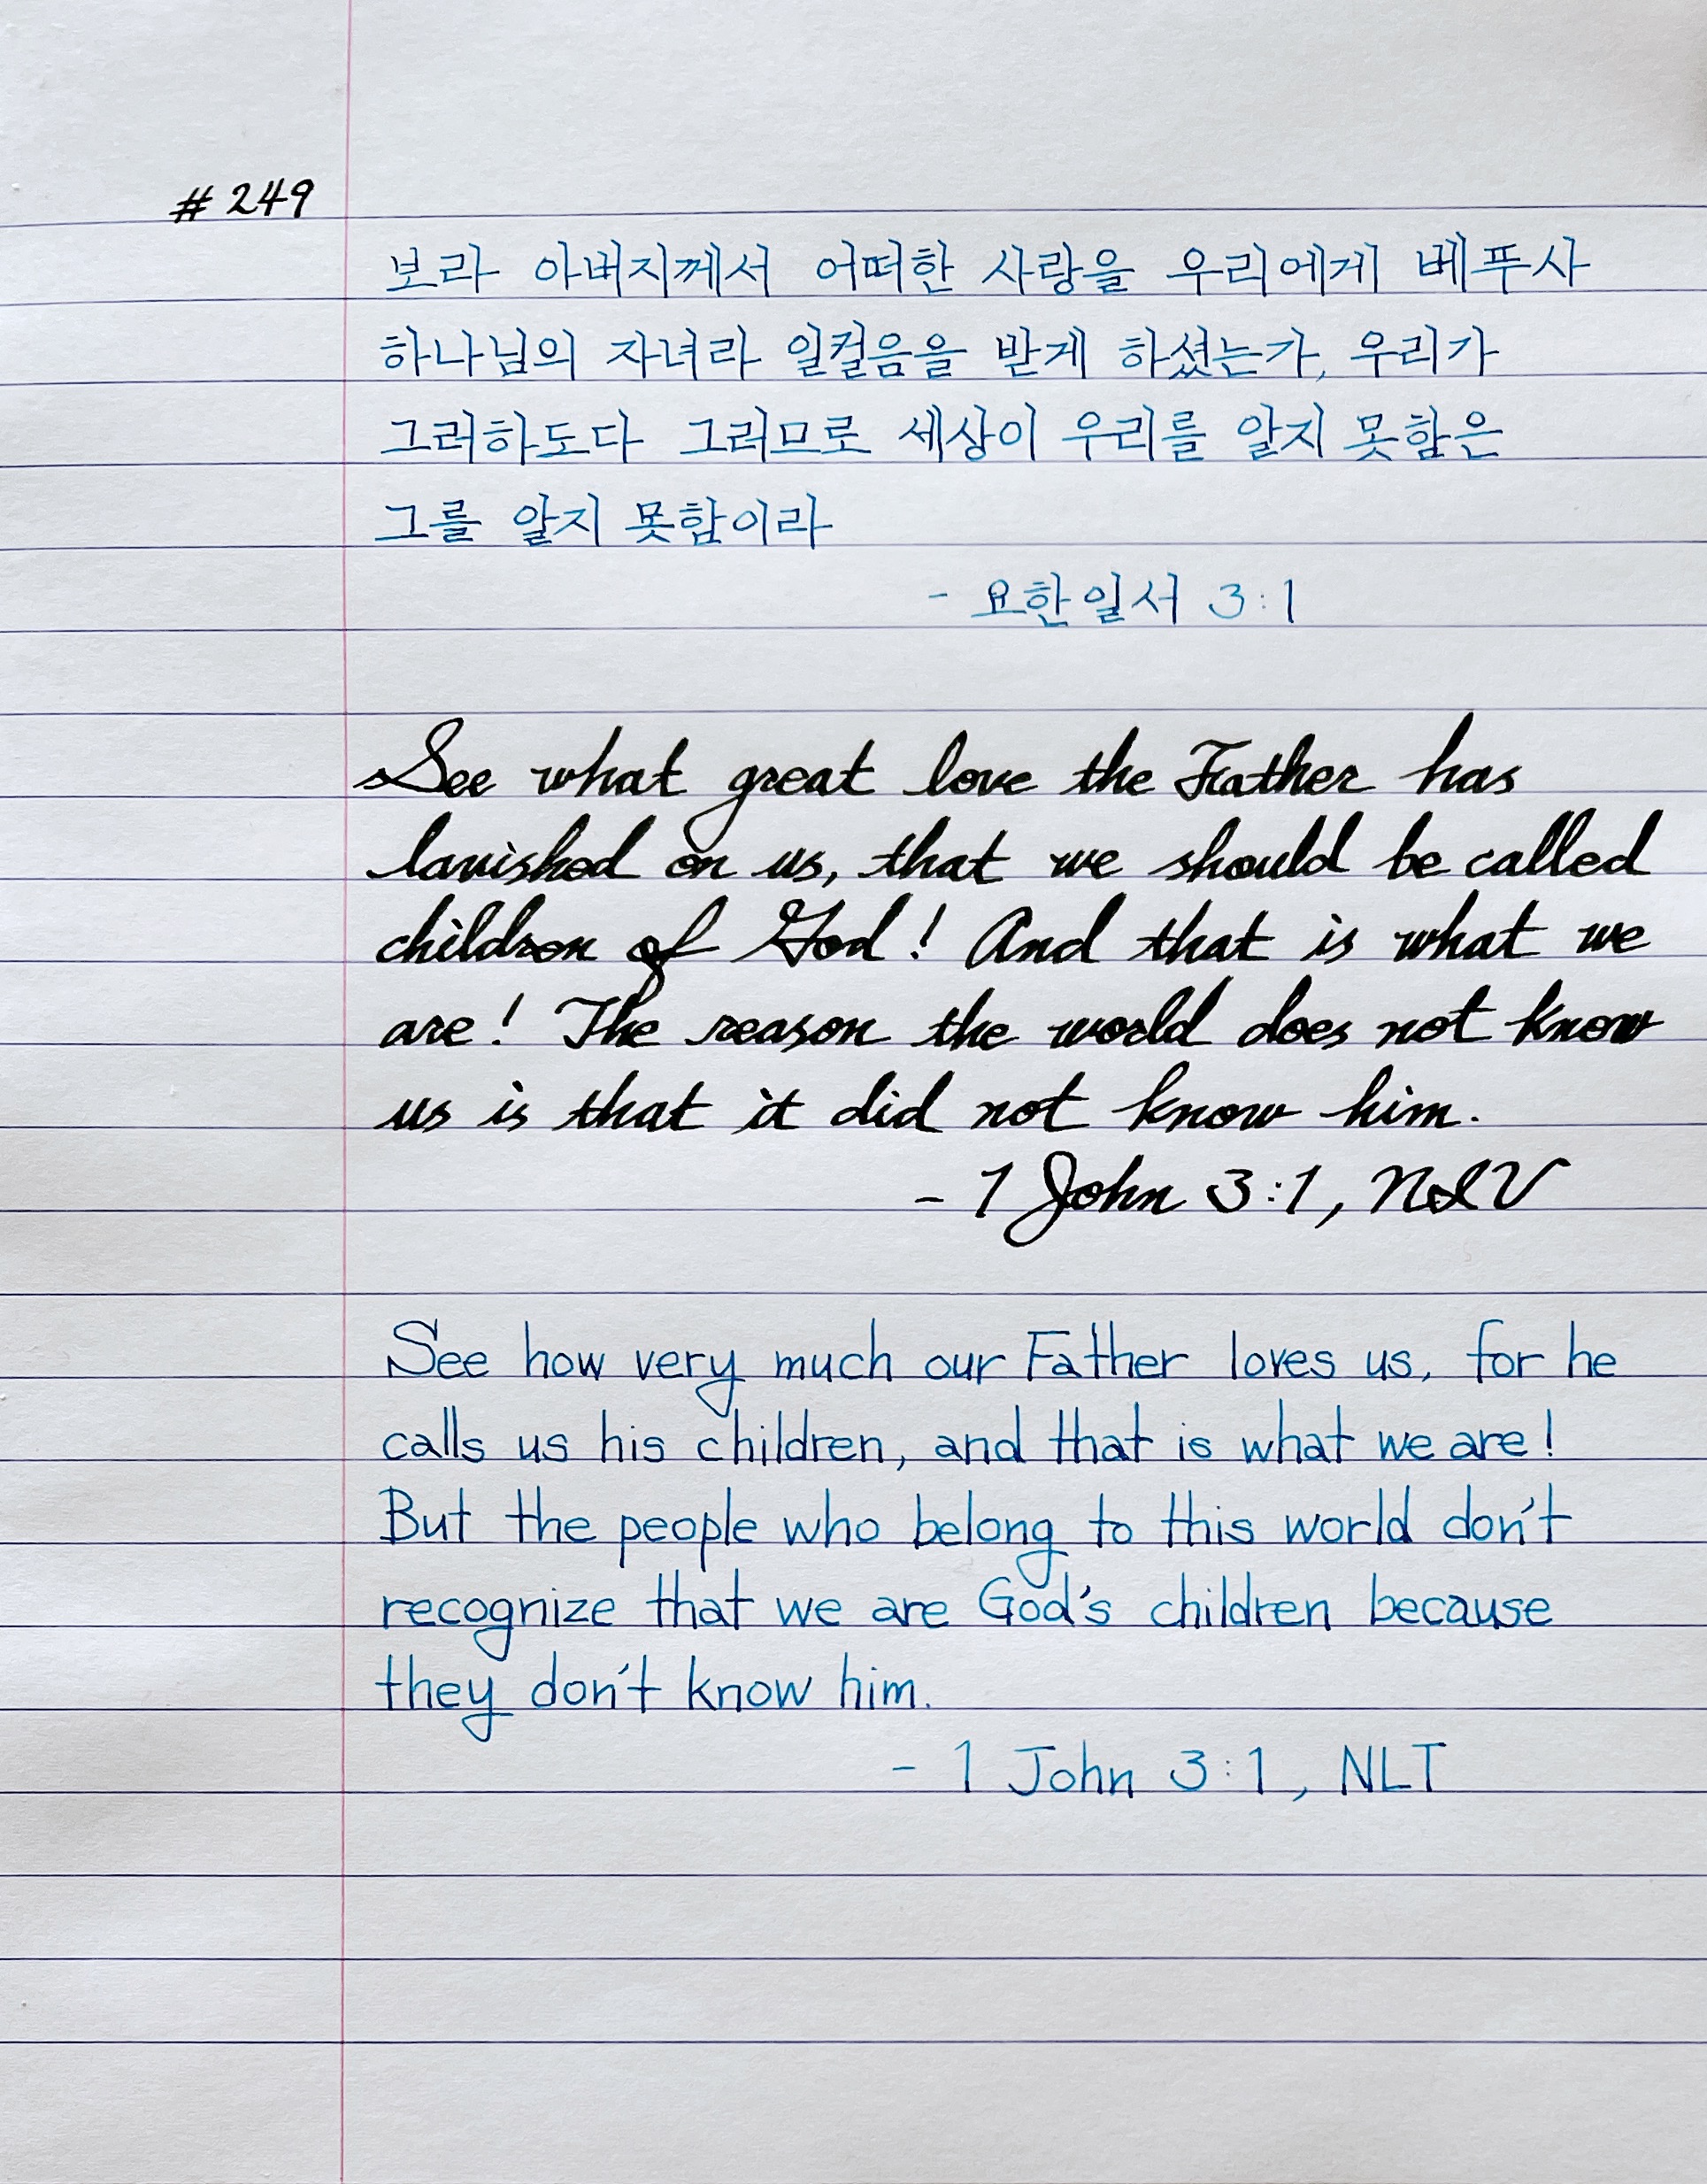 #249
보라 아버지께서 어떠한 사랑을 우리에게 베푸사
하나님의 자녀라 일컬음을 받게 하셨는가, 우리가
그러하도다 그러므로 세상이 우리를 알지 못함은
그를 알지 못함이라
- 요한일서 3:1
See what great love the Father has
lavished on us, that we should be called
children of God! And that is what we
are! The reason the world does not know
us is that it did not know him.
- 1 John 3:1, NIV
See how very much our Father loves us, for he
calls us his children, and that is what we are!
But the people who belong to this world don't
recognize that we are God's children because
they don't know him.
- 1 John 3:1, NLT